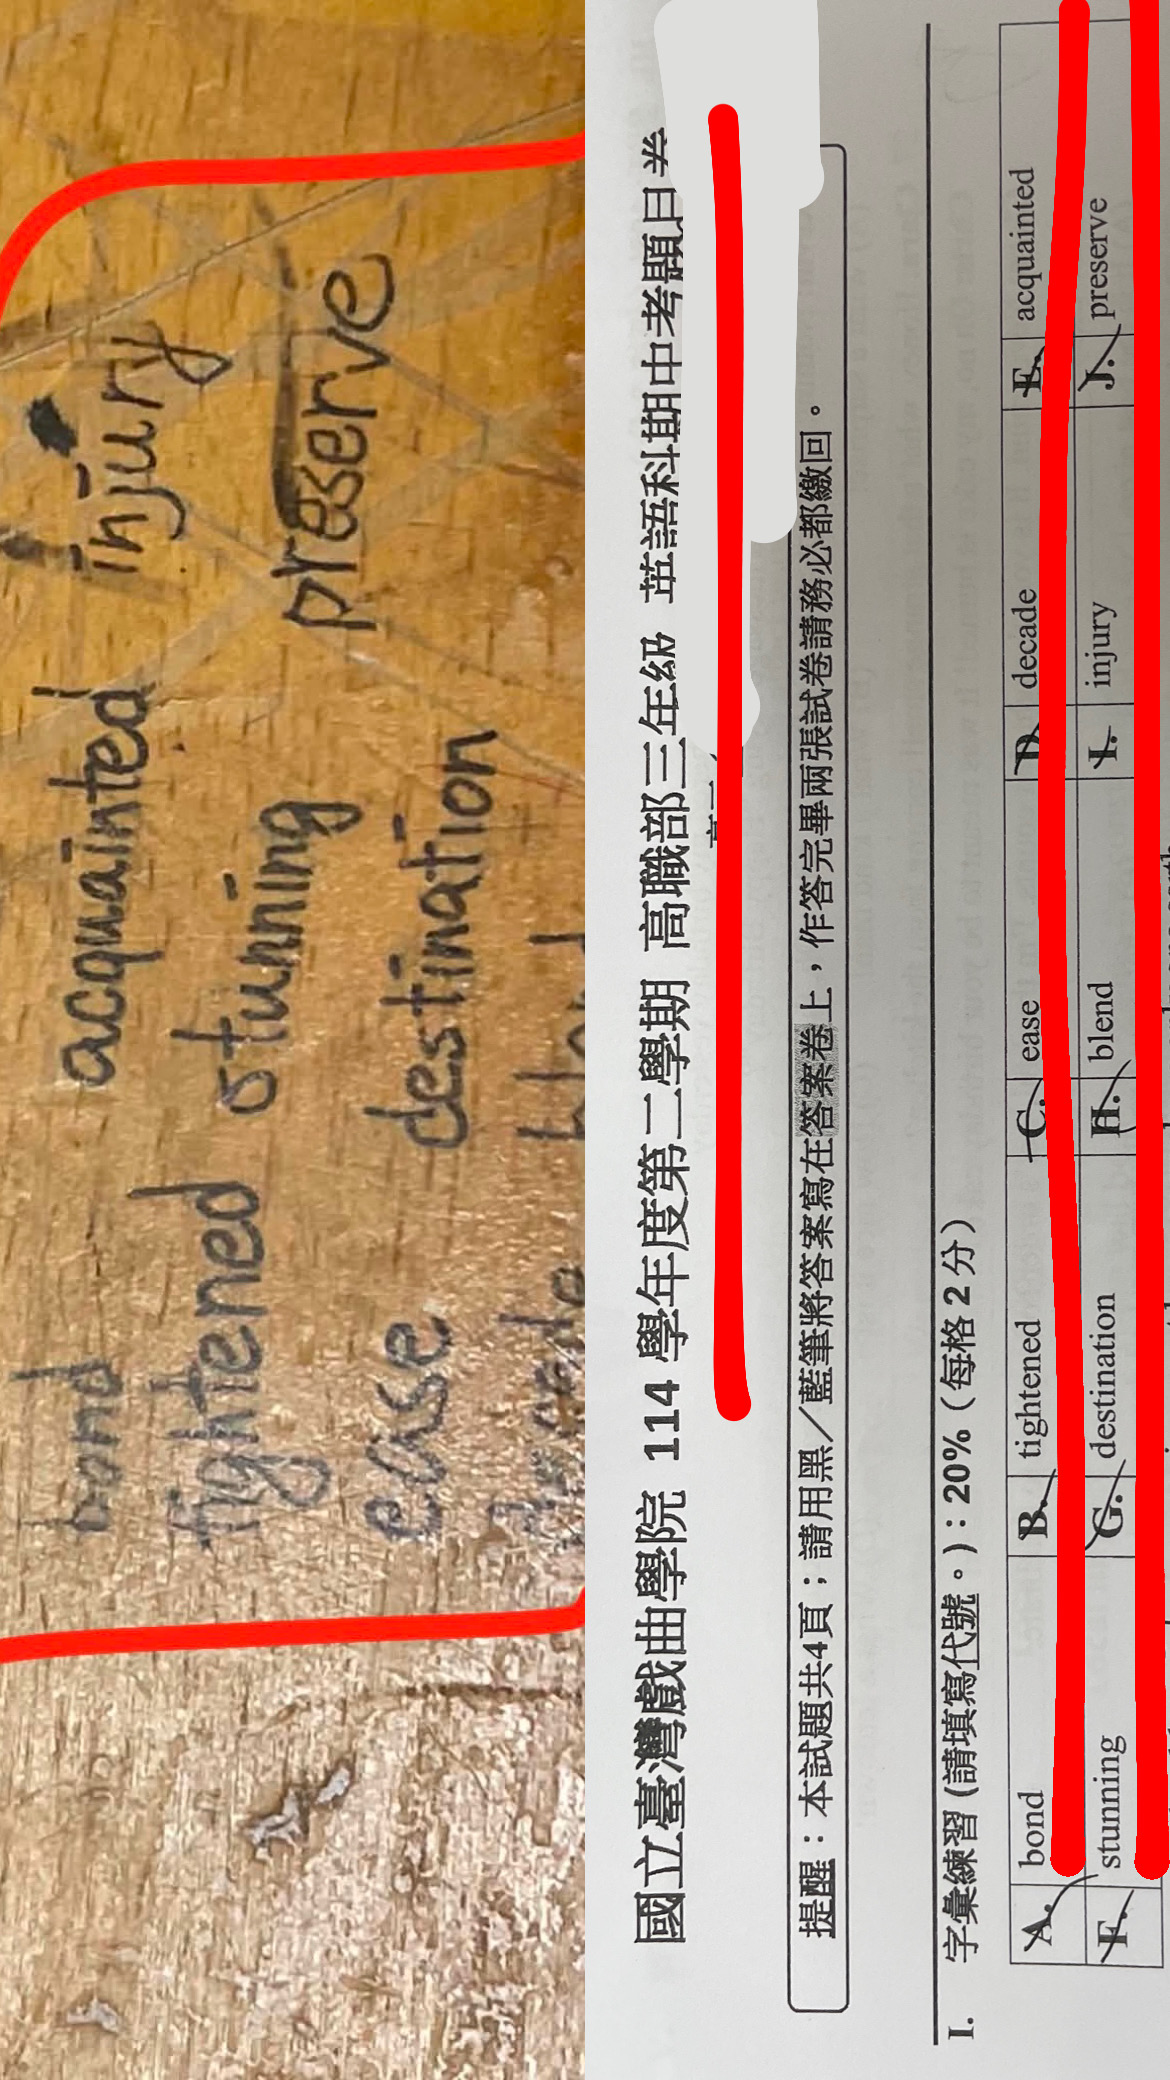 bond acquainted injury
tightened stunning preserve
ease destination
decade blend
國立臺灣戲曲學院 114 學年度第二學期 高職部三年級 英語科期中考題目卷
提醒：本試題共4頁；請用黑／藍筆將答案寫在答案卷上，作答完畢兩張試卷請務必都繳回。
I. 字彙練習 (請填寫代號。)：20%（每格 2 分）
A. bond B. tightened C. ease D. decade E. acquainted
F. stunning G. destination H. blend I. injury J. preserve